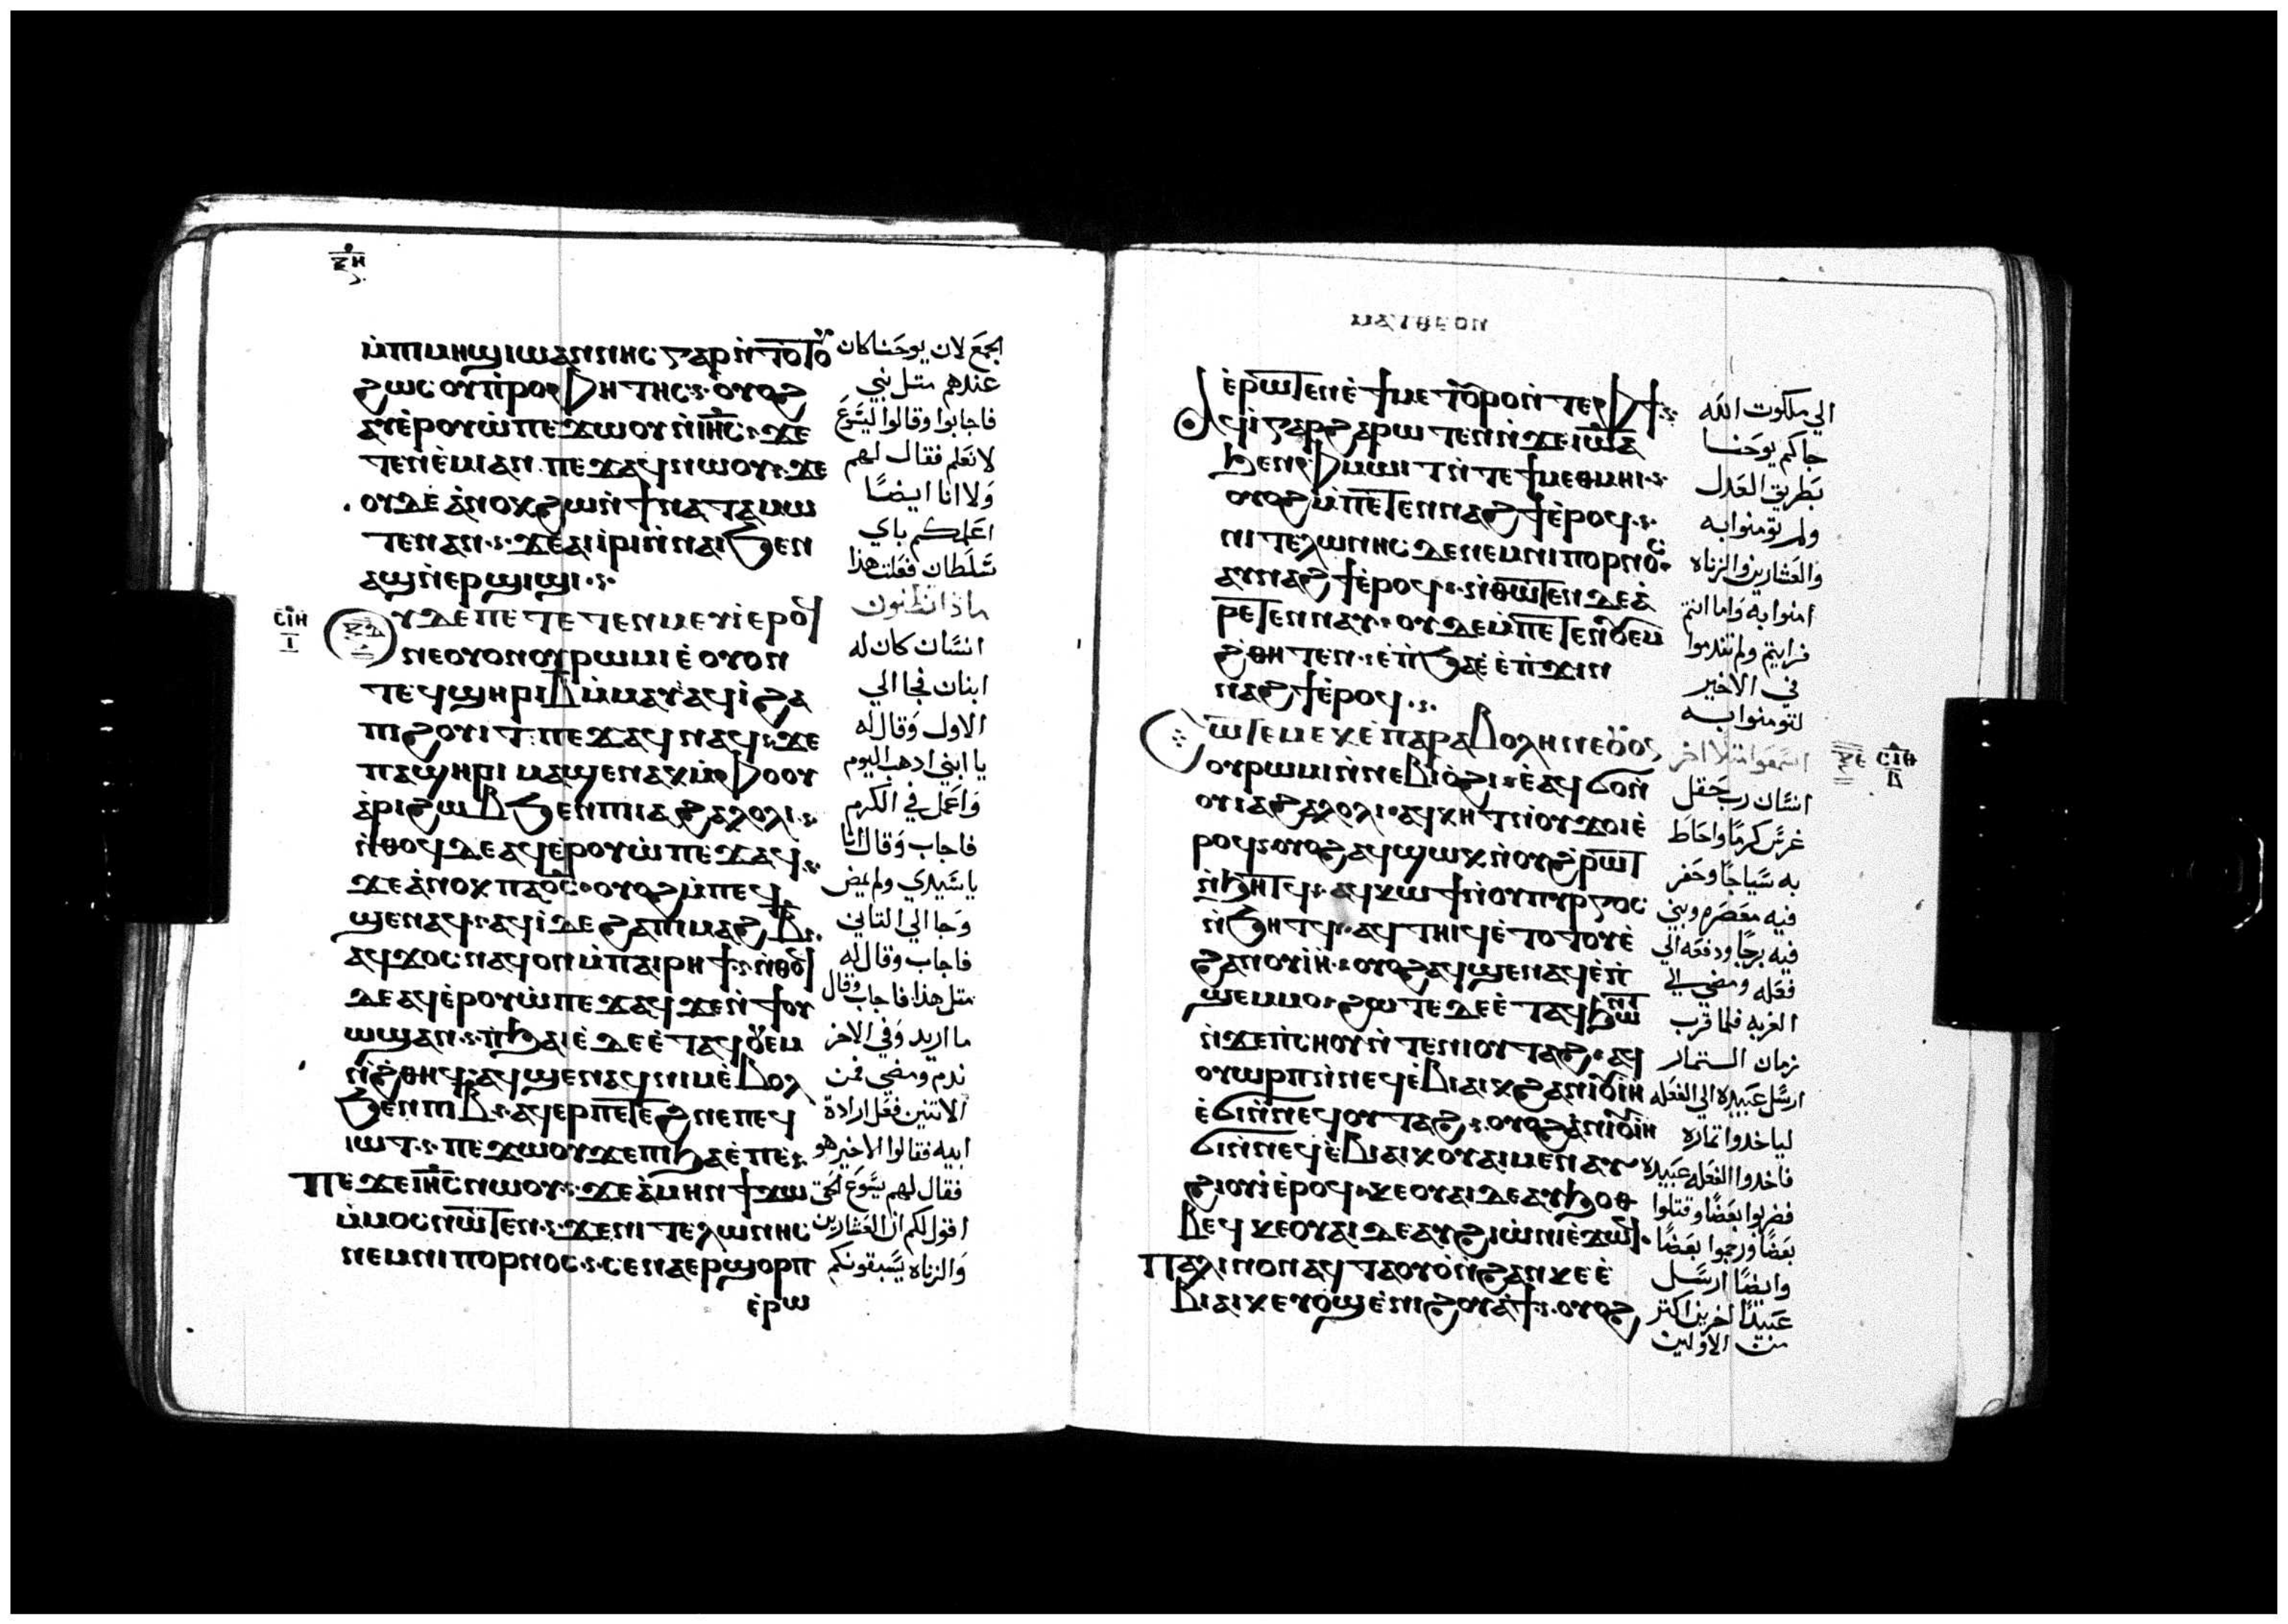 ⲝⲏ
ⲙ̀ⲡⲓⲙⲏϣ ⲓⲱⲁⲛⲛⲏⲥ ⲅⲁⲣ ⲛ̀ⲧⲟⲧⲟⲩ
ϩⲱⲥ ⲟⲩⲡ̀ⲣⲟⲫⲏⲧⲏⲥ · ⲟⲩⲟϩ
ⲁⲩⲉ̀ⲣⲟⲩⲱ̀ ⲡⲉϫⲱⲟⲩ ⲛ̀ⲓⲏⲥ · ϫⲉ
ⲧⲉⲛⲉ̀ⲙⲓ ⲁⲛ ⲡⲉϫⲁϥ ⲛⲱⲟⲩ · ϫⲉ
ⲟⲩⲇⲉ ⲁ̀ⲛⲟⲕ ϩⲱ ⲛ̀ϯⲛⲁⲧⲁⲙⲱ
ⲧⲉⲛ ⲁⲛ · ϫⲉ ⲁⲓⲓ̀ⲣⲓ ⲛ̀ⲛⲁⲓ ϧⲉⲛ
ⲁϣ ⲛ̀ⲉⲣϣⲓϣⲓ ·
ⲥⲓⲏ
ⲓ
ⲝⲇ
ⲟⲩ ⲇⲉ ⲡⲉⲧⲉⲧⲉⲛⲙⲉⲩⲓ̀ ⲉⲣⲟϥ
ⲛⲉ ⲟⲩⲟⲛ ⲟⲩⲣⲱⲙⲓ ⲉ̀ ⲟⲩⲟⲛ
ⲧⲉϥ ϣⲏⲣⲓ ⲃ̅ ⲙ̀ⲙⲁⲩ ⲁϥⲓ̀ ϩⲁ
ⲡⲓϩⲟⲩⲓⲧ ⲡⲉϫⲁϥ ⲛⲁϥ · ϫⲉ
ⲡⲁϣⲏⲣⲓ ⲙⲁϣⲉⲛⲁⲕ ⲙ̀ⲫⲟⲟⲩ
ⲁ̀ⲣⲓϩⲱⲃ ϧⲉⲛ ⲡⲓⲁϩⲁⲗⲟⲗⲓ ·
ⲛ̀ⲑⲟϥ ⲇⲉ ⲁϥⲉ̀ⲣⲟⲩⲱ̀ ⲡⲉϫⲁϥ ·
ϫⲉ ⲁ̀ⲛⲟⲕ ⲡⲁⲟ̅ⲥ̅ · ⲟⲩⲟϩ ⲙ̀ⲡⲉϥ
ϣⲉⲛⲁϥ · ⲁϥⲓ̀ ⲇⲉ ϩⲁ ⲡⲓⲙⲁϩ ⲃ̅ ·
ⲁϥϫⲟⲥ ⲛⲁϥ ⲟⲛ ⲙ̀ⲡⲁⲓⲣⲏϯ · ⲛ̀ⲑⲟϥ
ⲇⲉ ⲁϥⲉ̀ⲣⲟⲩⲱ̀ ⲡⲉϫⲁϥ ϫⲉ ⲛ̀ϯⲟⲩ
ⲱϣ ⲁⲛ · ⲉ̀ⲡ̀ϧⲁⲉ̀ ⲇⲉ ⲉ̀ⲧⲁϥⲟⲩⲉⲙ
ⲛ̀ϩ̀ⲑⲏϥ · ⲁϥϣⲉⲛⲁϥ ⲛⲓⲙ ⲉ̀ⲃⲟⲗ
ϧⲉⲛ ⲡⲓⲃ̅ · ⲁϥⲉⲣ ⲡⲉⲧⲉϩⲛⲉ ⲡⲉϥ
ⲓⲱⲧ · ⲡⲉϫⲱⲟⲩ ϫⲉ ⲡⲓϧⲁⲉ̀ ⲡⲉ ·
ⲡⲉϫⲉ ⲓⲏⲥ ⲛⲱⲟⲩ · ϫⲉ ⲁ̀ⲙⲏⲛ ϯϫⲱ
ⲙ̀ⲙⲟⲥ ⲛⲱⲧⲉⲛ · ϫⲉ ⲛⲓⲧⲉⲗⲱⲛⲏⲥ
ⲛⲉⲙ ⲛⲓⲡⲟⲣⲛⲟⲥ · ⲥⲉⲛⲁⲉⲣϣⲟⲣⲡ
ⲉ̀ⲣⲱ
الجمع لان يوحنا كان
عندهم مثل نبي
فاجابوا وقالوا ليسوع
لا نعلم فقال لهم
ولا انا ايضًا
اعلمكم باي
سلطان فعلت هذا
ماذا تظنون
انسان كان له
ابنان فجا الي
الاول وقال له
يا ابني ادهب اليوم
واعمل في الكرم
فاجاب وقال انا
يا سيدي ولم يمض
وجا الي التاني
فاجاب وقال له
متل هذا فاجاب وقال
ما اريد وفي الاخر
ندم ومضي فمن
الاتنين فعل ارادة
ابيه فقالوا الاخير هو
فقال لهم يسوع الحق
اقول لكم ان العشارين
والزناه يسبقونكم
ⲙⲁⲧⲑⲉⲟⲛ
ⲉ̀ⲣⲱⲧⲉⲛ ⲉ̀ϯⲙⲉⲧⲟⲩⲣⲟ ⲛ̀ⲧⲉ ⲫϯ ·
ⲁϥⲓ̀ ⲅⲁⲣ ϩⲁⲣⲱⲧⲉⲛ ⲛ̀ϫⲉ ⲓⲱⲁ
ϧⲉⲛ ⲫ̀ⲙⲱⲓⲧ ⲛ̀ⲧⲉ ϯⲙⲉⲑⲙⲏⲓ ·
ⲟⲩⲟϩ ⲙ̀ⲡⲉⲧⲉⲛⲛⲁϩϯ ⲉ̀ⲣⲟϥ ·
ⲛⲓⲧⲉⲗⲱⲛⲏⲥ ⲇⲉ ⲛⲉⲙ ⲛⲓⲡⲟⲣⲛⲟⲥ
ⲁⲩⲛⲁϩϯ ⲉ̀ⲣⲟϥ · ⲛ̀ⲑⲱⲧⲉⲛ ⲇⲉ ⲁ̀
ⲣⲉⲧⲉⲛⲛⲁⲩ · ⲟⲩⲇⲉ ⲙ̀ⲡⲉⲧⲉⲛⲟⲩⲉⲙ
ϩ̀ⲑⲏⲧⲉⲛ · ⲉ̀ⲡ̀ϧⲁⲉ̀ ⲉ̀ⲡ̀ϫⲓⲛ
ⲛⲁϩϯ ⲉ̀ⲣⲟϥ ·
ⲥⲱⲧⲉⲙ ⲉ̀ⲕⲉⲡⲁⲣⲁⲃⲟⲗⲏ ⲛⲉ ⲟⲩⲟⲛ
ⲟⲩⲣⲱⲙⲓ ⲛ̀ⲛⲉⲃⲓⲟ̀ϩⲓ · ⲉ̀ⲁϥϭⲟ ⲛ̀
ⲟⲩⲓⲁϩⲁⲗⲟⲗⲓ · ⲁϥⲕⲧⲉ ⲟⲩϫⲟⲓ ⲉ̀
ⲣⲟϥ · ⲟⲩⲟϩ ⲁϥϣⲱⲕ ⲛ̀ⲟⲩϩ̀ⲣⲱⲧ
ⲛ̀ϧⲏⲧϥ · ⲁϥⲕⲱϯ ⲛ̀ⲟⲩⲡⲩⲣⲅⲟⲥ
ⲛ̀ϧⲏⲧϥ · ⲁϥⲧⲏⲓϥ ⲉ̀ⲧⲟⲧⲟⲩ ⲉ̀
ϩⲁⲛⲟⲩⲓⲏ · ⲟⲩⲟϩ ⲁϥϣⲉⲛⲁϥ ⲉ̀ⲡ̀
ϣⲉⲙⲙⲟ · ϩⲟⲧⲉ ⲇⲉ ⲉ̀ⲧⲁϥϧⲱⲛⲧ
ⲛ̀ϫⲉ ⲡ̀ⲥⲏⲟⲩ ⲛ̀ⲧⲉ ⲛⲓⲟⲩⲧⲁϩ · ⲁϥ
ⲟⲩⲱⲣⲡ ⲛ̀ⲛⲉϥⲉ̀ⲃⲓⲁⲓⲕ ϩⲁ ⲛⲓⲟⲩⲓⲏ
ⲉ̀ϭⲓ ⲛ̀ⲛⲉϥⲟⲩⲧⲁϩ · ⲟⲩⲟϩ ⲁ̀ⲛⲓⲟⲩⲓⲏ
ϭⲓ ⲛ̀ⲛⲉϥⲉ̀ⲃⲓⲁⲓⲕ ⲟⲩⲁⲓ ⲙⲉⲛ ⲁⲩ
ϩⲓⲟⲩⲓ̀ ⲉ̀ⲣⲟϥ · ⲕⲉⲟⲩⲁⲓ ⲇⲉ ⲁⲩϧⲟⲑ
ⲃⲉϥ ⲕⲉⲟⲩⲁⲓ ⲇⲉ ⲁⲩϩⲓⲱ̀ⲛⲓ ⲉ̀ϫⲱϥ ·
ⲡⲁⲗⲓⲛ ⲟⲛ ⲁϥⲧⲁⲟⲩⲟ̀ ⲛ̀ϩⲁⲛⲕⲉⲉ̀
ⲃⲓⲁⲓⲕ ⲉⲩⲟ̀ϣ ⲉ̀ⲛⲓϩⲟⲩⲁ̀ϯ · ⲟⲩⲟϩ
الي ملكوت الله
جاكم يوحنا
بطريق العدل
ولم تومنوا به
والعشارين والزناه
امنوا به واما انتم
فرايتم ولم تندموا
في الاخير
لتومنوا به
اسمعوا مثلا اخر
ⲝⲉ ⲥⲓⲑ
ⲃ
انسان رب حقل
غرس كرمًا واحاط
به سياجًا وحفر
فيه معصره وبني
فيه برجًا ودفعه الي
فعله ومضي الي
الغربه فلما قرب
زمان الثمار
ارسل عبيده الي الفعله
لياخدوا ثماره
فاخدوا الفعله عبيده
فضربوا بعضًا وقتلوا
بعضًا ورجموا بعضًا
وايضًا ارسل
عبيدًا اخرين اكثر
من الاولين